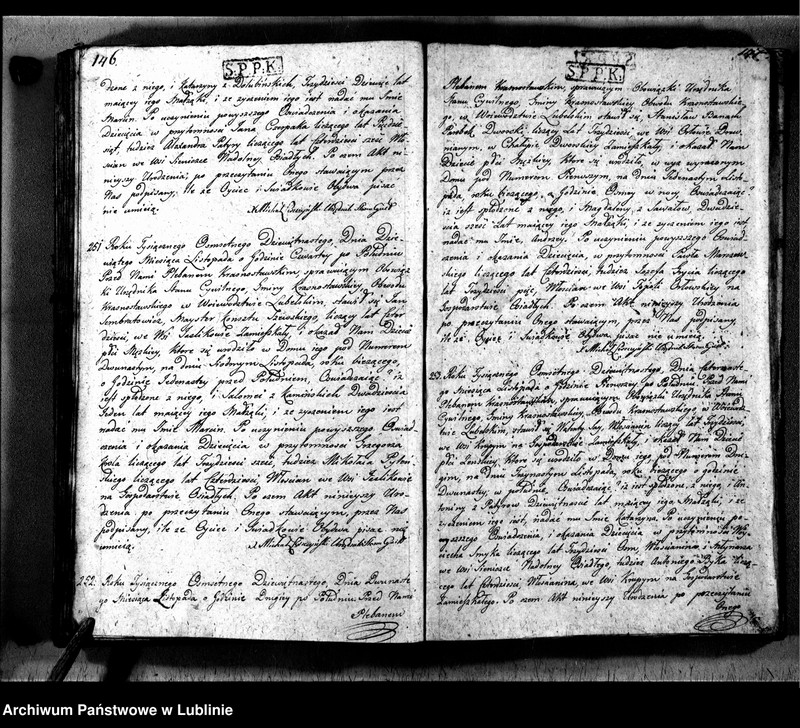 146.
S.P.P.K.
dzone z niego, i Katarzyny z Trzydzieści Dziewięć lat
maiący iego Małżąki, i ze zyczeniem iego iest nadac mu Imie
Marcin. Po uczynieniu powyzszego Oswiadczenia i okazania
Dziecięcia w przytomnosci Jana Czopaka liczącego lat
tudziez Alexandra liczącego lat Czterdzieści sześć Wło-
scian we Wsi Siennicze Nadolney Osiadłych. Po czem Akt ni-
nieyszy Urodzenia, po przeczytaniu Onego stawaiącym przez
Nas podpisany, ile ze Oyciec i Swiadkowie Obydwa pisac
nie umieią.
X Michał Urzędnik Stanu Cywil
251 Roku Tysiącznego Osmsetnego Dziewiętnastego, Dnia Dzie-
wiątego Miesiąca Listopada o Godzinie Czwarty po Południu
Przed Nami Plebanem Krasnostawskim sprawuiącym Obowiąz-
ki Urzędnika Stanu Cywilnego, Gminy Krasnostawskiey, Obwodu
Krasnostawskiego w Woiewodztwie Lubelskim stawił się Jan
Sembratowicz, Mayster Konsztu Szewskiego, liczący lat Czter-
dzieści, we Wsi Zamieszkały, i okazał Nam Dziecie
płci Męzkiey, które się urodziło w Domu iego pod Numerem
Dwunastym, na dniu Siodmym Listopada, roku bieżącego,
o Godzinie Jedenasty przed Południem, Oswiadczaiąc iż
iest spłodzone z niego, i Salomei z Kaminskich Dwadziescia
Jeden lat maiący iego Małżąki, i ze zyczeniem iego iest
nadac mu Imie Marcin. Po uczynieniu powyzszego Oswiad-
czenia i okazania Dziecięcia w przytomnosci Grzegorza
Krola liczącego lat Trzydzieści sześć, tudziez Mikołaia
liczącego lat Czterdzieści, Włoscian we Wsi
na Gospodarstwie Osiadłych, Po czem Akt ninieyszy Uro-
dzenia po przeczytaniu Onego stawaiącym, przez Nas
podpisany, ile ze Oyciec i Swiadkowie Obydwa pisac nie
umieią.
X Michał Urzędnik Stanu Cywill
252. Roku Tysiącznego Osmsetnego Dziewiętnastego, Dnia Dwunaste-
go Miesiąca Listopada o Godzinie Drugiey po Południu Przed Nami
Plebanem
S.P.P.K.
Plebanem Krasnostawskim, sprawuiącym Obowiązki Urzędnika
Stanu Cywilnego Gminy Krasnostawskiey Obwodu Krasnostawskie-
go, w Woiewodztwie Lubelskim stawił się, Stanisław Banach
Parobek, Dworski, liczący lat Trzydzieści, we Wsi Orłowie Drew-
nianym, w Chałupie Dworskiey Zamieszkały, i okazał Nam
Dziecie płci Męzkiey, które się urodziło, w wyż wyrazonym
domu pod Numerem Pierwszym, na dniu Jedenastym Listo-
pada, roku bieżącego, o godzinie Osmey w nocy Oswiadczaiąc
iż iest spłodzone z niego, i Magdaleny, z Dwadzie-
scia sześć Lat maiący iego Małżąki, i ze zyczeniem iego iest,
nadac mu Imie, Andrzey. Po uczynieniu powyzszego Oswiad-
czenia i okazania Dziecięcia, w przytomnosci Pawła
liczącego lat Czterdzieści, tudziez Jozefa liczącego
lat Trzydzieści pięć, Włoscian we Wsi Orłowskiey na
Gospodarstwie Osiadłych. Po czem Akt ninieyszy Urodzenia
po przeczytaniu Onego stawaiącym, przez Nas podpisany,
ile ze Oyciec i Swiadkowie Obydwa pisac nie umieią.
X Michał Urzędnik Stanu Cywil
253. Roku Tysiącznego Osmsetnego Dziewiętnastego, Dnia Czternaste-
go Miesiąca Listopada o Godzinie Pierwszey po Południu Przed Nami
Plebanem Krasnostawskim, sprawuiącym Obowiązki Urzędnika Stanu
Cywilnego Gminy Krasnostawskiey, Obwodu Krasnostawskiego, w Woiewodz-
twie Lubelskim, stawił się Woyciech Włoscianin liczący lat Trzydzieści,
we Wsi Krupym na Gospodarstwie Zamieszkały, i okazał Nam Dziecie
płci Zenskiey, które się urodziło w Domu iego pod Numerem Dru-
gim, na dniu Trzynastym Listopada, roku bieżącego o godzinie
Dwunastey, w południe, Oswiadczaiąc iż iest spłodzone z niego, i An-
toniny z Dziewiętnascie lat maiący iego Małżąki, i ze
zyczeniem iego iest, nadac mu Imie Katarzyna. Po uczynieniu po-
wyzszego Oswiadczenia, i okazania Dziecięcia w przytomnosci Woy-
ciecha Smyka liczącego lat Trzydzieści Osm, Włoscianina i
we Wsi Siennicze Nadolney Osiadłego, tudziez Antoniego liczą-
cego lat Czterdzieści Włoscianina, we Wsi Krupym na Gospodarstwie
Zamieszkałego. Po czem Akt ninieyszy Urodzenia po przeczytaniu
Onego
Archiwum Państwowe w Lublinie